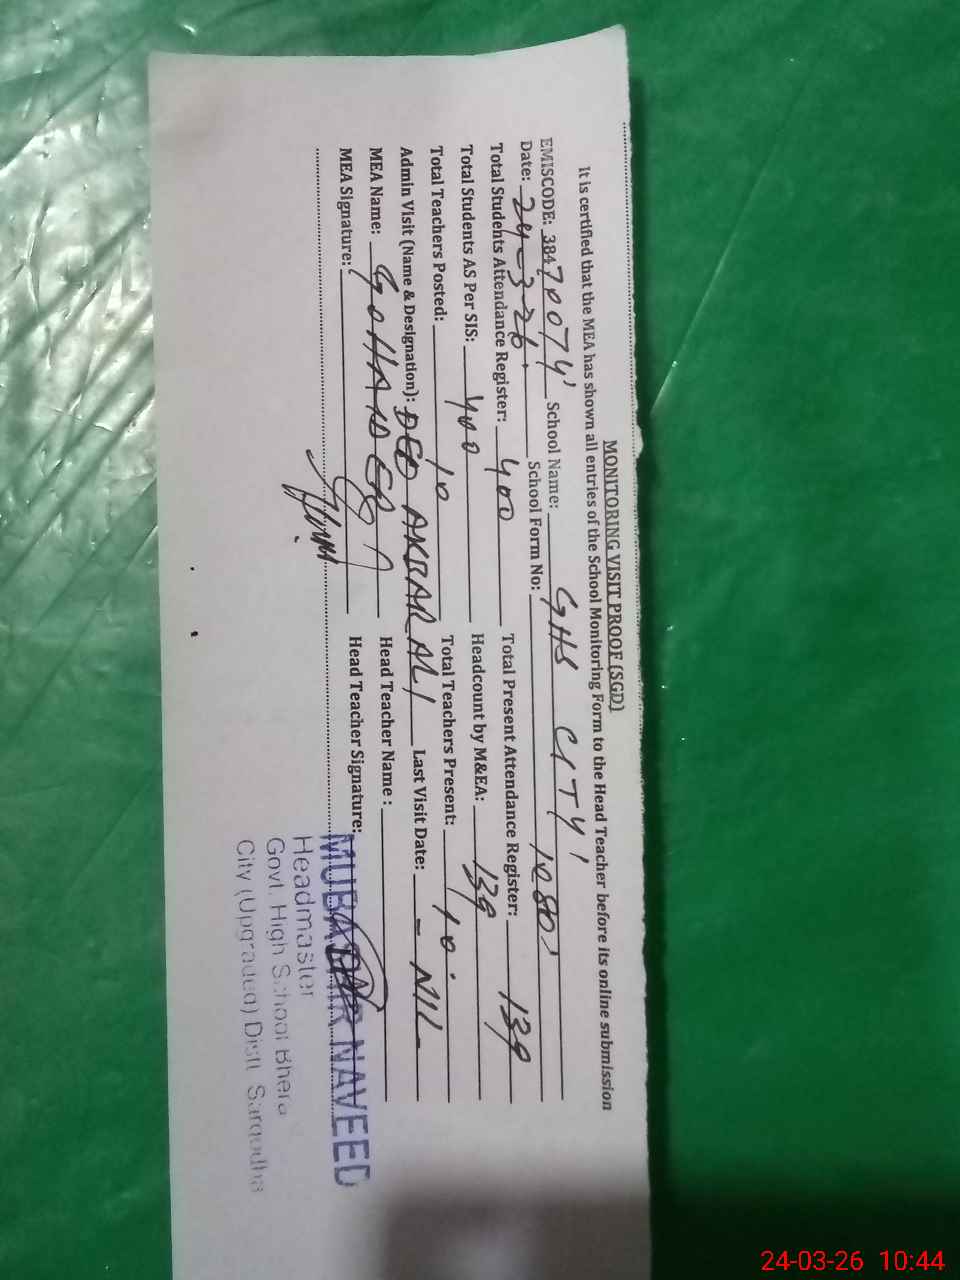 MONITORING VISIT PROOF (SGD)
It is certified that the MEA has shown all entries of the School Monitoring Form to the Head Teacher before its online submission
EMISCODE: 38470074 School Name: GHS CITY
Date: 24-3-26. School Form No:
Total Students Attendance Register: 400 Total Present Attendance Register: 139
Total Students AS Per SIS: 400 Headcount by M&EA: 139
Total Teachers Posted: 10 Total Teachers Present: 10.
Admin Visit (Name & Designation): DEO AKBAR ALI Last Visit Date: - NIL -
MEA Name: Head Teacher Name :
MEA Signature: Head Teacher Signature:
NAVEED
Headmaster
Govt. High School Bhera
City (Upgraded) Distt. Sargodha
24-03-26 10:44